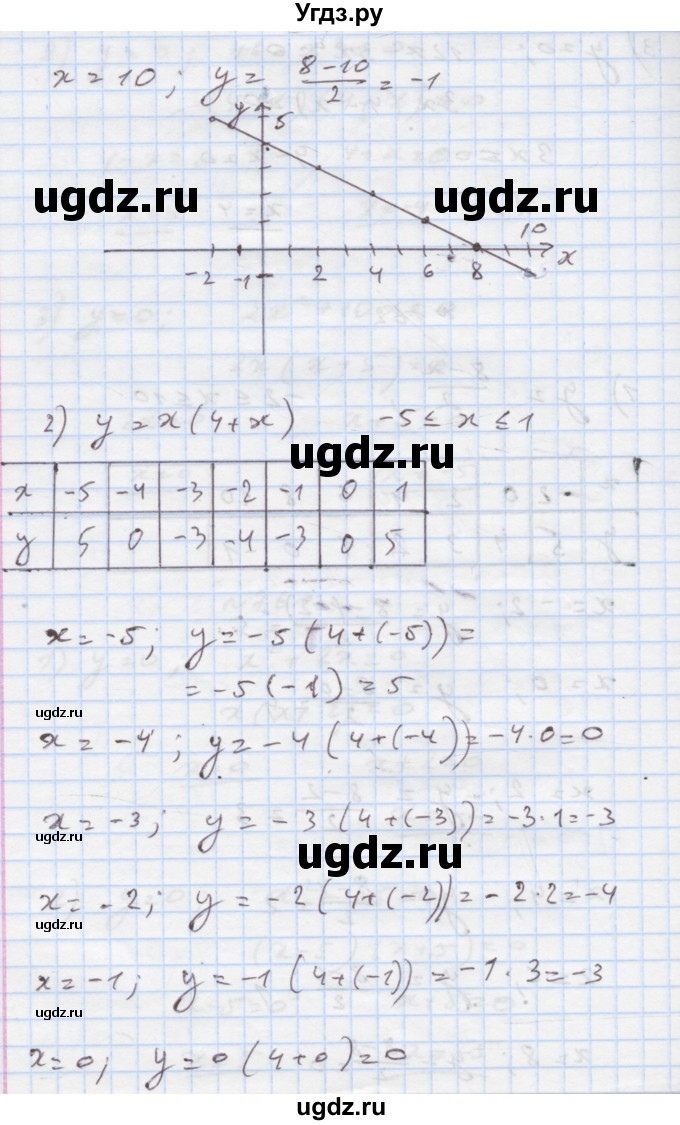 Угдз.ру
x = 10 ; y = (8-10)/2 = -1
y 5
ugdz.ru ugdz.ru
10
-2 -1 2 4 6 8 x
2) y = x(4+x) -5 ≤ x ≤ 1
ugdz.ru
x -5 -4 -3 -2 -1 0 1
y 5 0 -3 -4 -3 0 5
x = -5 ; y = -5(4+(-5)) =
= -5(-1) = 5
ugdz.ru
x = -4 ; y = -4(4+(-4)) = -4·0 = 0
x = -3 ; y = -3(4+(-3)) = -3·1 = -3
ugdz.ru
ugdz.ru
x = -2 ; y = -2(4+(-2)) = -2·2 = -4
ugdz.ru
x = -1 ; y = -1(4+(-1)) = -1·3 = -3
ugdz.ru
x = 0 ; y = 0(4+0) = 0
ugdz.ru